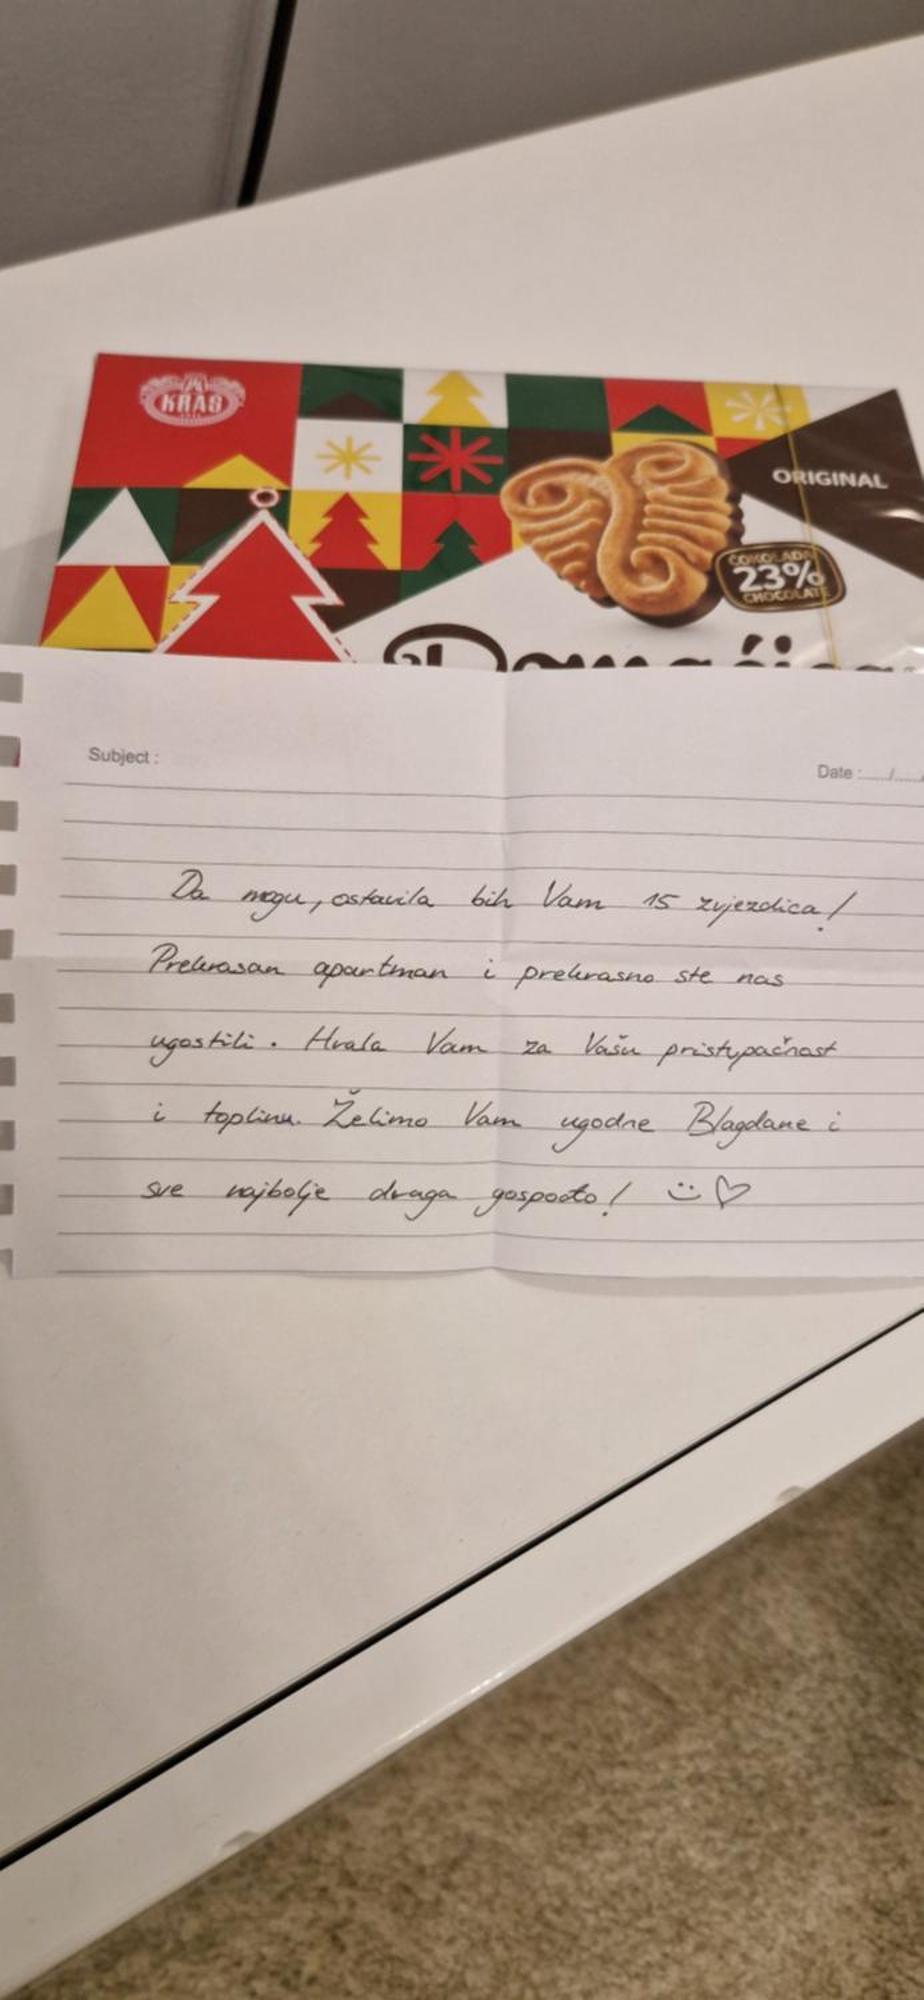 KRAŠ
1911
ORIGINAL
ČOKOLADE
23%
CHOCOLATE
Domaćica
Subject :
Date : ...../.....
Da mogu, ostavila bih Vam 15 zvjezdica!
Prekrasan apartman i prekrasno ste nas
ugostili. Hvala Vam za Vašu pristupačnost
i toplinu. Želimo Vam ugodne Blagdane i
sve najbolje draga gospođo! :) ♡